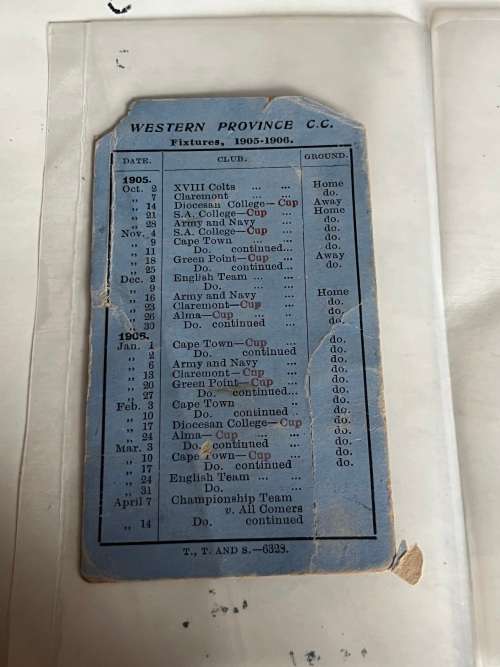 WESTERN PROVINCE C.C.
Fixtures, 1905-1906.
DATE. CLUB. GROUND.
1905.
Oct. 2 XVIII Colts ... ... Home
„ 7 Claremont ... ... do.
„ 14 Diocesan College—Cup Away
„ 21 S.A. College—Cup ... Home
„ 28 Army and Navy ... do.
Nov. 4 S.A. College—Cup ... do.
„ 9 Cape Town ... ... do.
„ 11 Do. continued... do.
„ 18 Green Point—Cup ... Away
„ 25 Do. continued... do.
Dec. 2 English Team ... ...
„ 9 Do. ... ...
„ 16 Army and Navy ... Home
„ 23 Claremont—Cup ... do.
„ 26 Alma—Cup ... .. do.
„ 30 Do. continued ... do.
1905.
Jan. 1 Cape Town—Cup ... do.
„ 2 Do. continued do.
„ 6 Army and Navy ... do.
„ 13 Claremont—Cup ... do.
„ 20 Green Point—Cup ... do.
„ 27 Do. continued... do.
Feb. 3 Cape Town .. do.
„ 10 Do. continued .. do.
„ 17 Diocesan College—Cup do.
„ 24 Alma—Cup ... ... do.
Mar. 3 Do. continued ... do.
„ 10 Cape Town—Cup ... do.
„ 17 Do. continued do.
„ 24 English Team ... ...
„ 31 Do. ...
April 7 Championship Team
v. All Comers
„ 14 Do. continued
T., T. AND S.—6328.